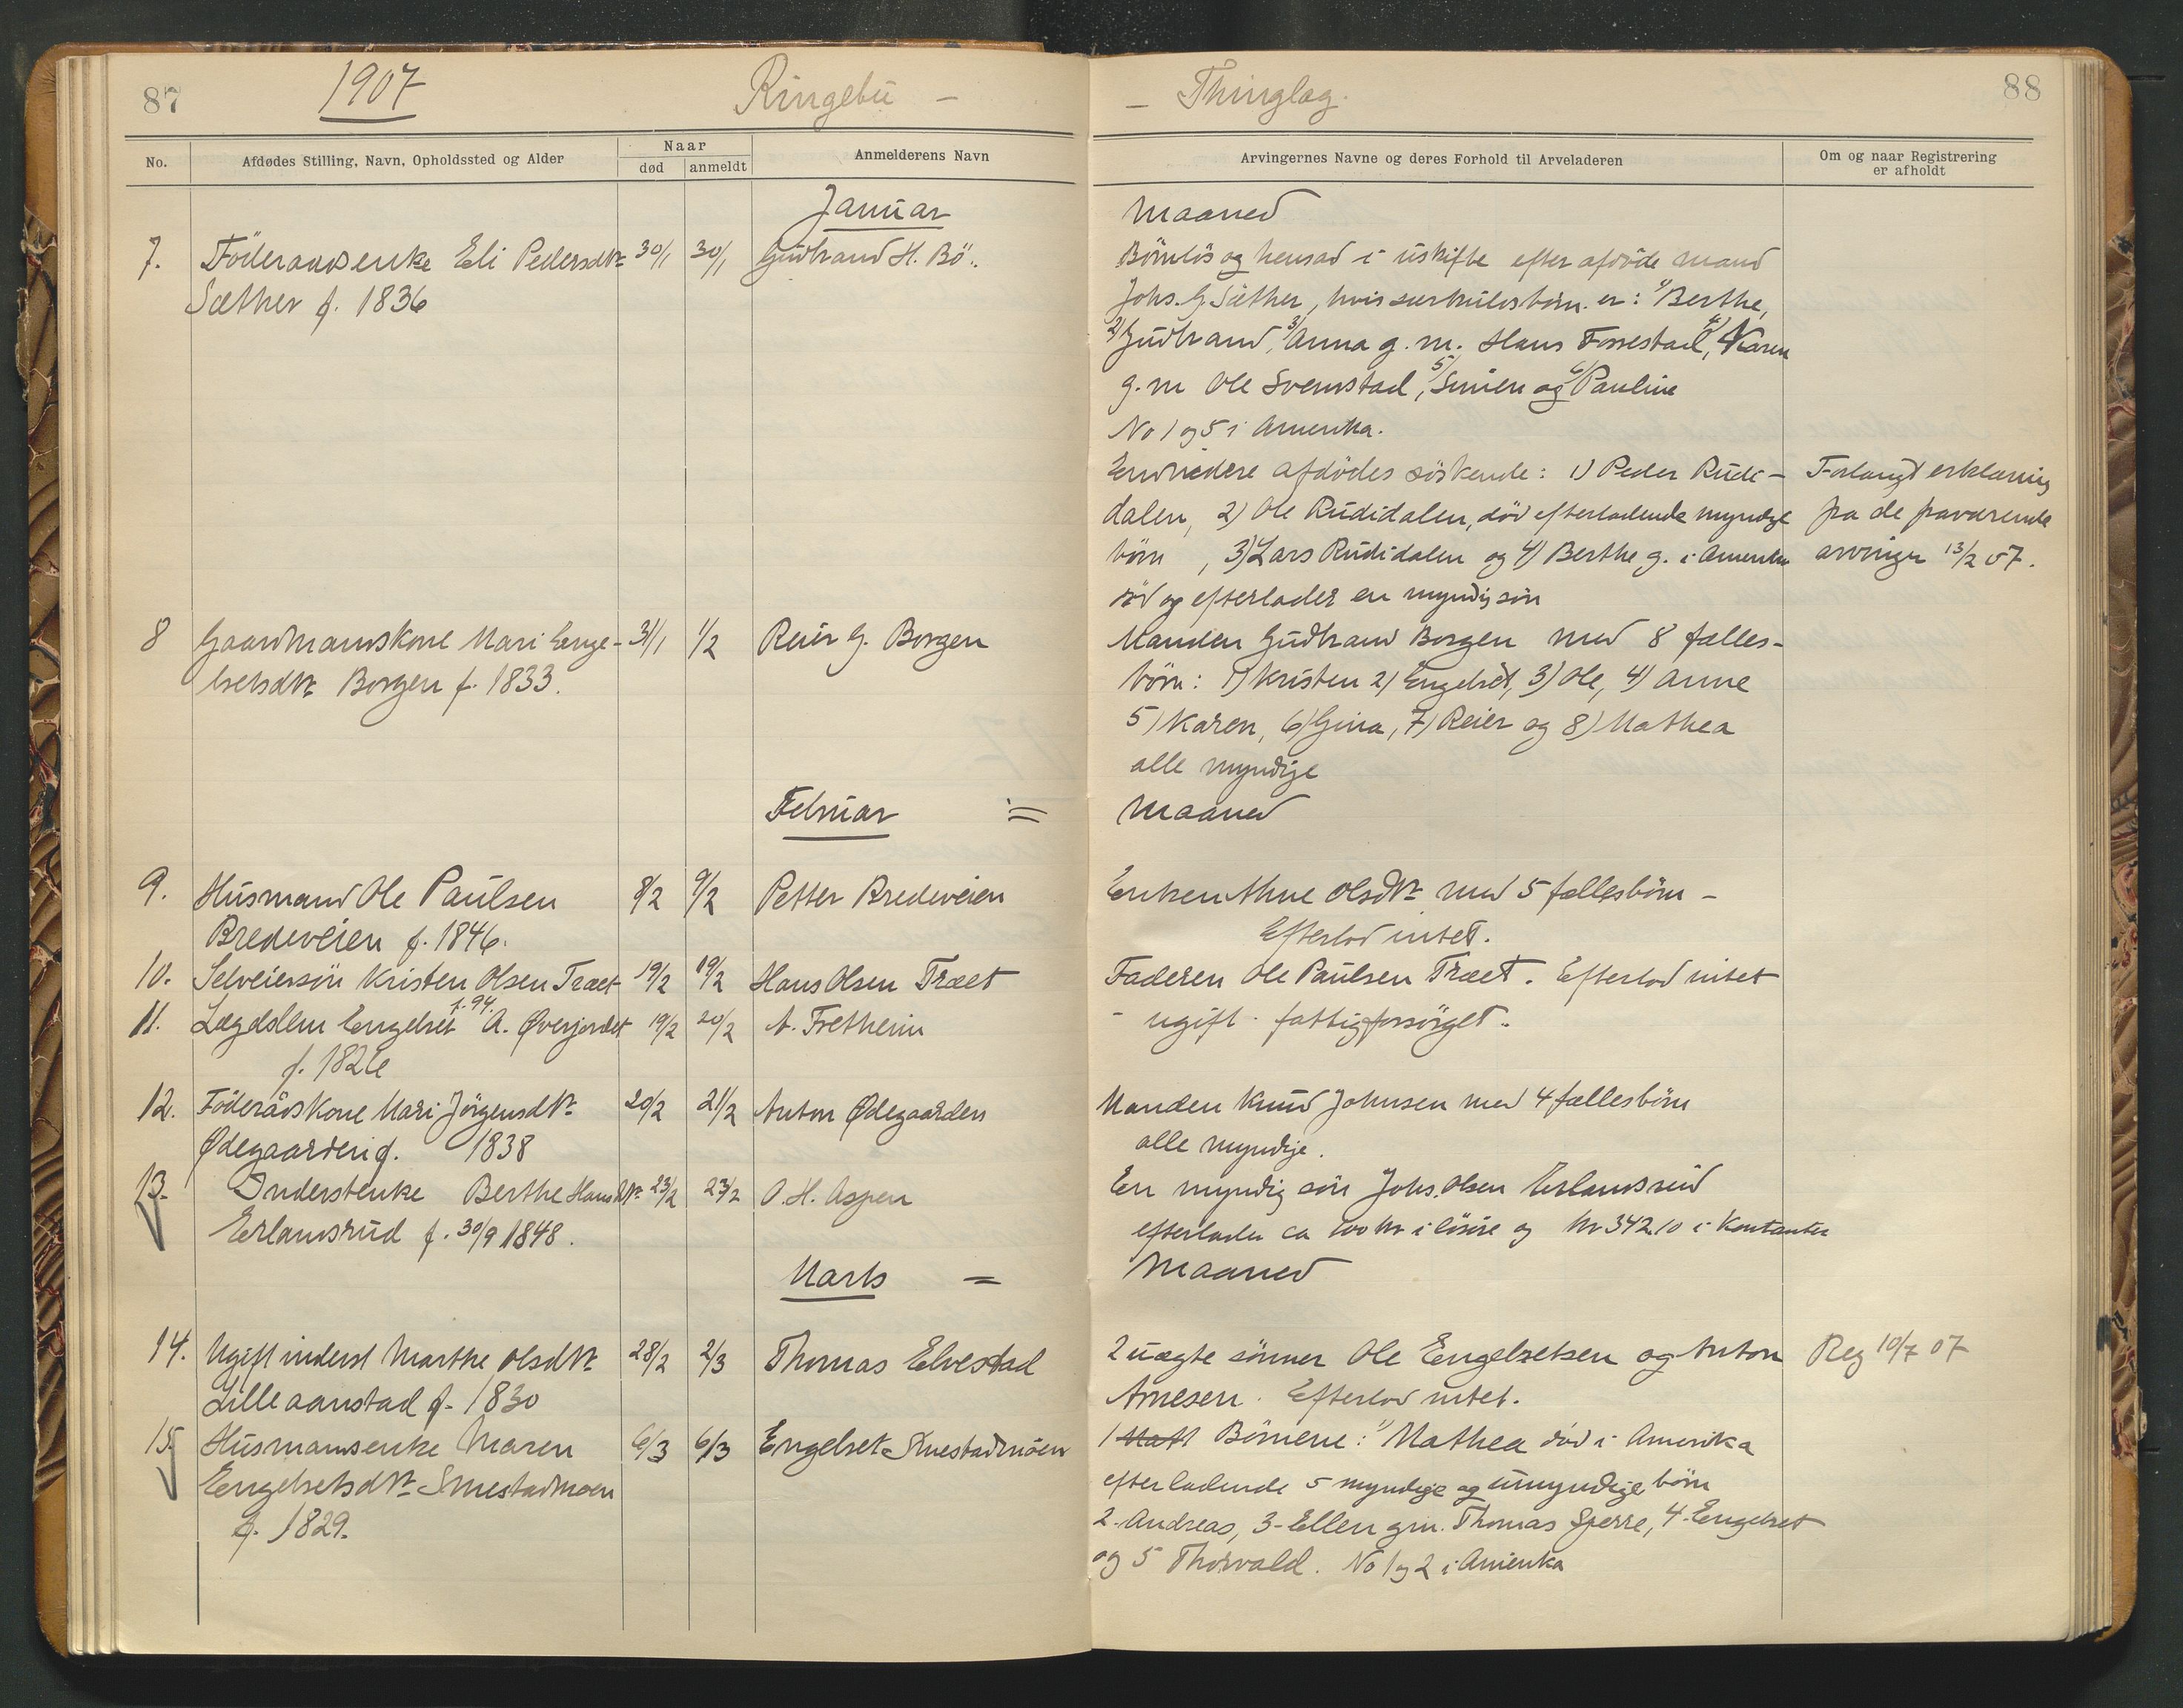 87
1907
Ringebu —
— Thinglag.
88
No.
Afdødes Stilling, Navn, Opholdssted og Alder
Naar
død
anmeldt
Anmelderens Navn
Arvingernes Navne og deres Forhold til Arveladeren
Om og naar Registrering
er afholdt
Januar
Maaned
7. Föderaadsenke Eli Pedersdtr 30/1 30/1 Gudbrand H. Bö.
Sæther f. 1836
Börnlös og hensad i uskifte efter afdöde mand
Johs. G. Sæther, hvis særkulsbörn er: 1) Berthe,
2) Gudbrand, 3) Anna g. m. Hans Fossestad, 4) Karen
g. m Ole Svemstad, 5) Simen og 6) Pauline
No 1 og 5 i Amerika.
Endvidere afdödes söskende: 1) Peder Rudi-
dalen, 2) Ole Rudidalen, död efterladende myndige
börn, 3) Lars Rudidalen og 4) Berthe g. i Amerika
död og efterlader en myndig sön
Forlangt erklæring
fra de arvinger 13/2 07.
8 Gaardmandskone Mari Enge- 31/1 1/2 Reier G. Borgen
bretsdtr Borgen f. 1833.
Manden Gudbrand Borgen med 8 fælles-
börn: 1) Kristen 2) Engebret, 3) Ole, 4) Anne
5) Karen, 6) Gina, 7) Reier og 8) Mathea
alle myndige
Februar =
Maaned
9. Husmand Ole Paulsen 8/2 9/2 Petter Bredeveien
Bredeveien f. 1846.
Enken Ane Olsdtr med 5 fællesbörn -
Efterlod intet.
10. Selveiersön Kristen Olsen Træet 19/2 19/2 Hans Olsen Træet
f. 94.
Faderen Ole Paulsen Træet. Efterlod intet
11. Lægdslem Engebret A. Øverjordet 19/2 20/2 A. Fretheim
f. 1826
- ugift. fattigforsörget.
12. Föderådskone Mari Jörgensdtr 20/2 21/2 Anton Ødegaarden
Ødegaarden f. 1838
Manden Knud Johnsen med 4 fællesbörn
alle myndige.
13. Inderstenke Berthe Hansdtr 23/2 23/2 O. H. Aspen
Erlandsrud f. 30/9 1848.
En myndig sön Johs. Olsen Erlandsrud
efterlader ca 100 kr i lösöre og kr 342.10 i Kontanter
Marts =
Maaned
14. Ugift inderst Marthe Olsdtr 28/2 2/3 Thomas Elvestad
Lilleaanstad f. 1830
2 uægte sönner Ole Engebretsen og Anton
Arnesen. Efterlod intet.
Reg 10/7 07
15. Husmandsenke Maren 6/3 6/3 Engebret Smestadmoen
Engebretsdtr Smestadmoen
f. 1829.
1 Math Börnene: 1) Mathea död i Amerika
efterladende 5 myndige og umyndige börn
2. Andreas, 3- Ellen gm. Thomas Sperre, 4. Engebret
og 5 Thorvald. No 1 og 2 i Amerika